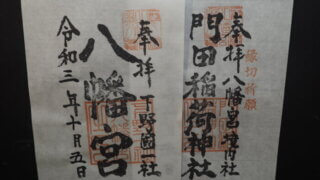 奉拝
八幡宮境内社
門田稲荷神社
縁切祈願
奉拝
下野國一社
八幡宮
令和三年十月五日